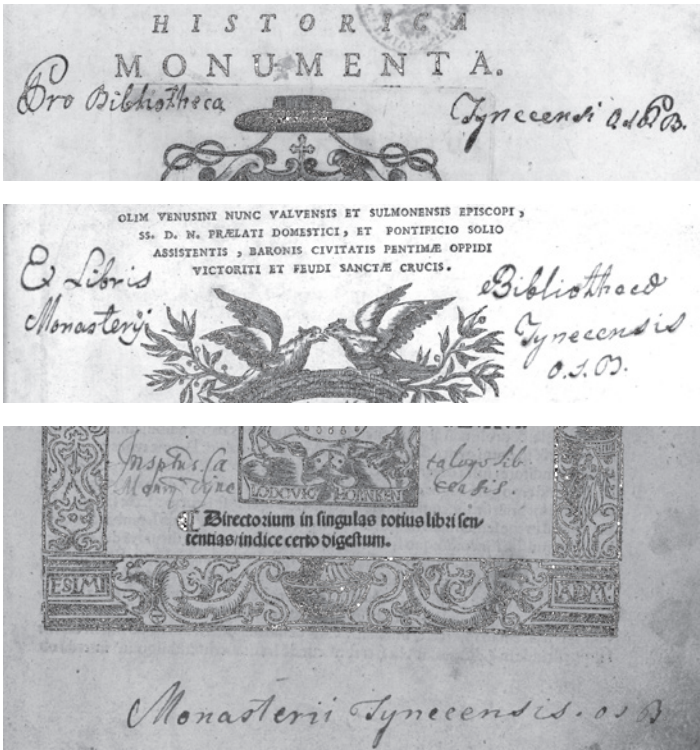 HISTORICA
MONUMENTA.
Pro Bibliotheca Tynecensi O.S.P.B.
OLIM VENUSINI NUNC VALVENSIS ET SULMONENSIS EPISCOPI,
SS. D. N. PRÆLATI DOMESTICI, ET PONTIFICIO SOLIO
ASSISTENTIS, BARONIS CIVITATIS PENTIMÆ OPPIDI
VICTORITI ET FEUDI SANCTÆ CRUCIS.
Ex Libris Bibliothecæ
Monasterij Tynecensis
O.S.B.
Insptus. Ca talogo lib
Mon Tyne censis.
LODOVIC HORNKEN
Directorium in singulas totius libri sen-
tentias/indice certo digestum.
ESIMI
Monasterii Tynecensis. OSB